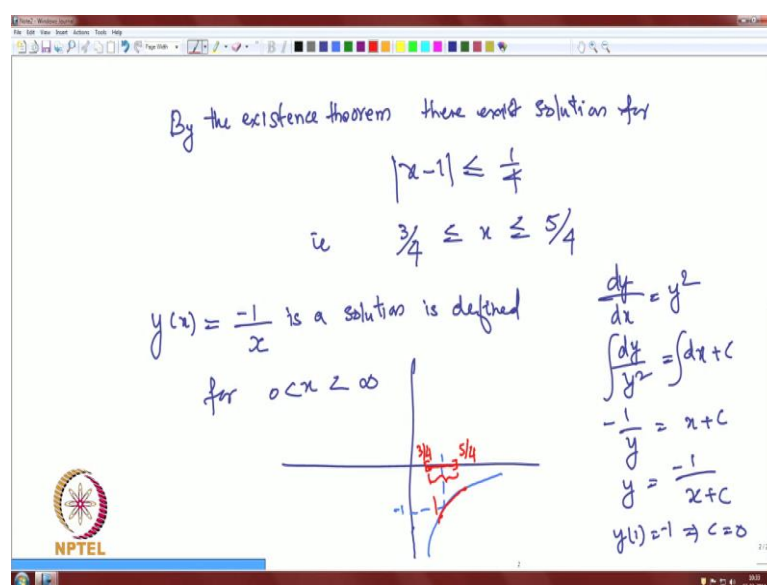 Note2 - Windows Journal
File Edit View Insert Actions Tools Help
Page Width
By the existence theorem there exist solution for
|x-1| ≤ 1/4
ie 3/4 ≤ x ≤ 5/4
y(x) = -1/x is a solution is defined
for 0 < x < ∞
3/4 5/4
-1
dy/dx = y²
∫dy/y² = ∫dx + c
-1/y = x + c
y = -1/(x+c)
y(1) = -1 ⇒ c = 0
NPTEL
2